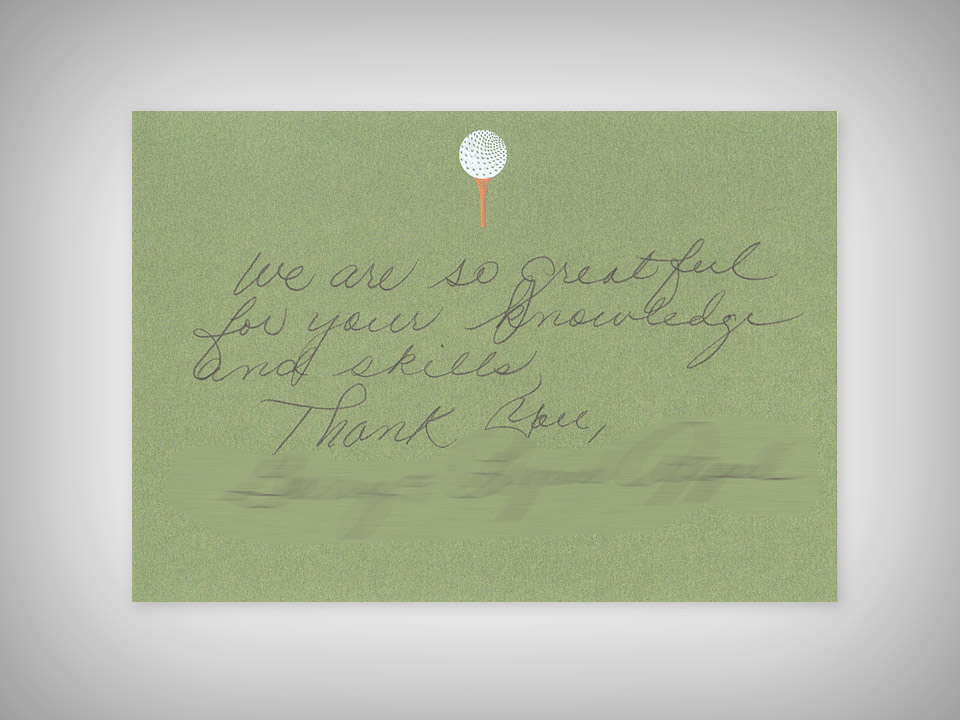 We are so greatful
for your knowledge
and skills
Thank You,